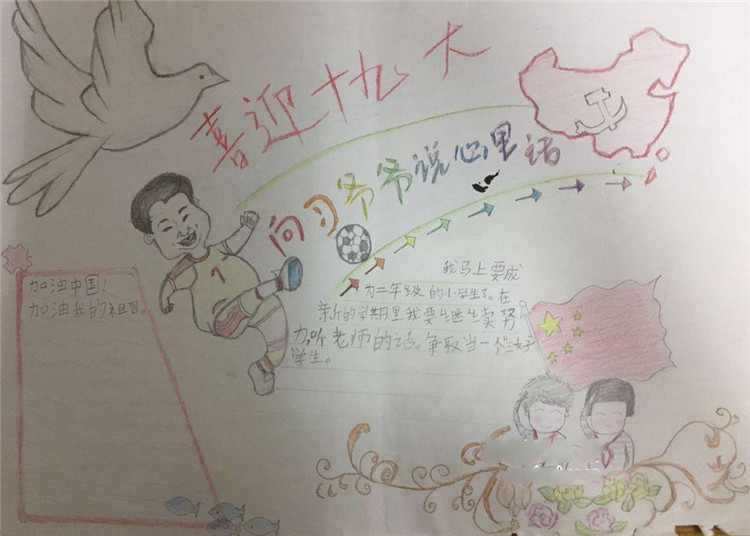 喜迎十九大
向习爷爷说心里话
加油中国！
加油我的祖国。
我马上要成
为二年级的小学生了。在
新的学期里我要继续努
力,听老师的话。争取当一个三好
学生。
1